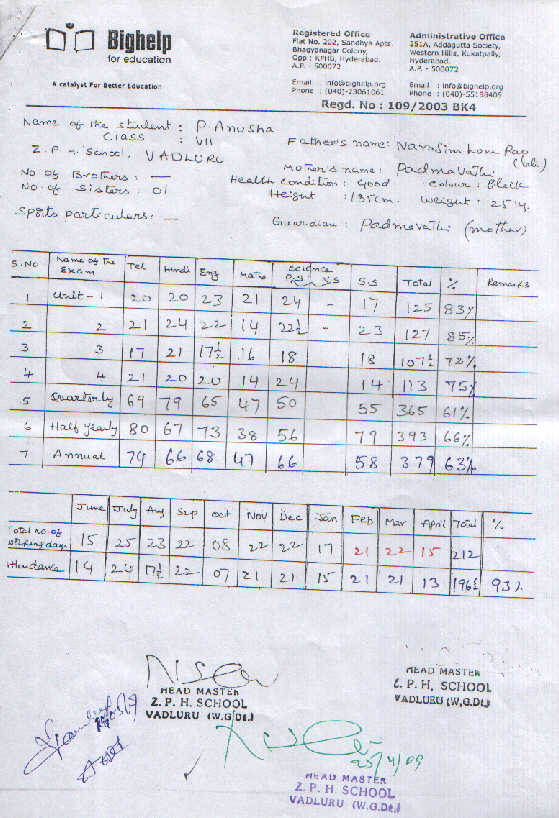 Bighelp
for education
A catalyst For Better Education
Registered Office
Flat No. 202, Sandhya Apts.
Bhagyanagar Colony,
Opp : KPHB, Hyderabad.
A.P. - 500072
Email : info@bighelp.org
Phone : (040)-23061061
Administrative Office
151A, Addagutta Society,
Western Hills, Kukatpally,
Hyderabad.
A.P. - 500072
Email : info@bighelp.org
Phone : (040)-55188405
Regd. No : 109/2003 BK4
Name of the student : P. Anusha
Class : VII
Father's name: Narasimha Rao
(late)
Z.P.H. School, VADLURU
Mother's name: Padmavathi
No of Brothers : —
Health condition : good colour : Black
No. of Sisters : 01
Height : 135cm. weight : 25 kg
Sports particulars : —
Guardian : Padmavathi (mother)
S.No Name of the Exam Tel Hindi Eng Maths Science P.S N.S S.S Total % Remarks
1 Unit - 1 20 20 23 21 24 - 17 125 83%
2 2 21 24 22 14 22½ - 23 127 85%
3 3 17 21 17½ 16 18 18 107½ 72%
4 4 21 20 20 14 24 14 113 75%
5 Quarterly 69 79 65 47 50 55 365 61%
6 Half yearly 80 67 73 38 56 79 393 66%
7 Annual 79 66 68 47 66 58 379 63%
June July Aug Sep Oct Nov Dec Jan Feb Mar April Total %
Total no. of working days 15 25 23 22 08 22 22 17 21 22 15 212
Attendance 14 17½ 22 07 21 21 15 21 21 13 196½ 93%
HEAD MASTER
Z. P. H. SCHOOL
VADLURU (W.G.Dt.)
HEAD MASTER
Z. P. H. SCHOOL
VADLURU (W.G.Dt.)
25/4/09
HEAD MASTER
Z. P. H. SCHOOL
VADLURU (W.G.Dt.)